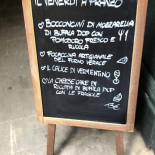 IL VENERDÌ A PRANZO
BOCCONCINI DI MOZZARELLA
DI BUFALA DOP CON
POMODORO FRESCO E
RUCOLA
FOCACCINA ARTIGIANALE
DEL FORNO VERACE
IL CALICE DI VERMENTINO
LA CHEESECAKE DI
RICOTTA DI BUFALA
DOP CON LE FRAGOLE